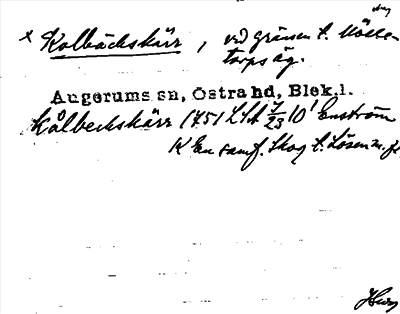 x Kolbäckskärr, vid gränsen t. Mölle-
torps äg.
Augerums sn, Östra hd, Blek.l.
Kålbeckskärr 1751 LSA 7/23 10¹ Enström
K En samf. Skog t. Lösen m. fl